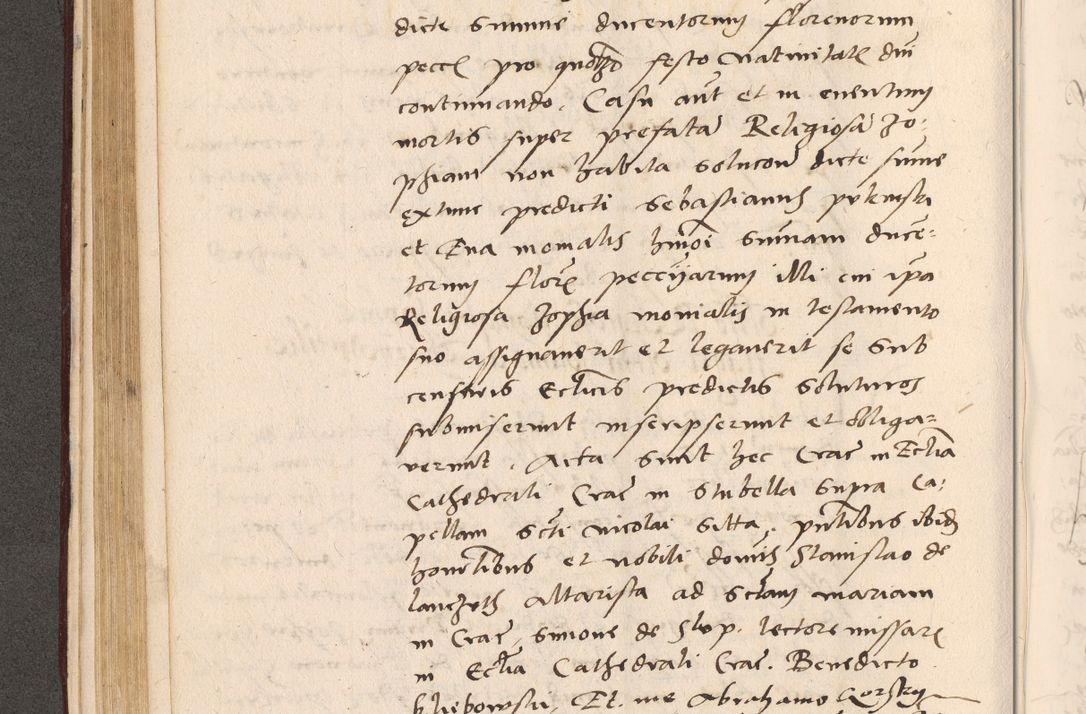 dicte Summe ducentorum florenorum
pecc pro quolibet festo Nativitatis dni
continuando. Casu aut et in eventum
mortis super prefata Religiosa Zo-
phiam non habita Solucon dicte sume
extunc predicti Sebastianus
et Eva monialis hmoi Sumam duce=
torum flor pecciyarum illi cui ipa
Religiosa Zophia monialis in testamento
suo assignaverit et legaverit se Sub
censuris Eccticis predictis Soluturos
submiserunt inscripserunt et obliga=
verunt. Acta Sunt hec Crac in Ecclia
Cathedrali Crac in Stubella Supra Ca-
pellam Scti Nicolai Sitta. pntibus ibid
et nobili domis Stanislao de
lanczuth Altarista ad Sctam mariam
in Crac, Simone de Slop. lectore missar
in Ecclia Cathedrali Crac. Benedicto
klyebowski, Et. me Abrahamo Gorsky